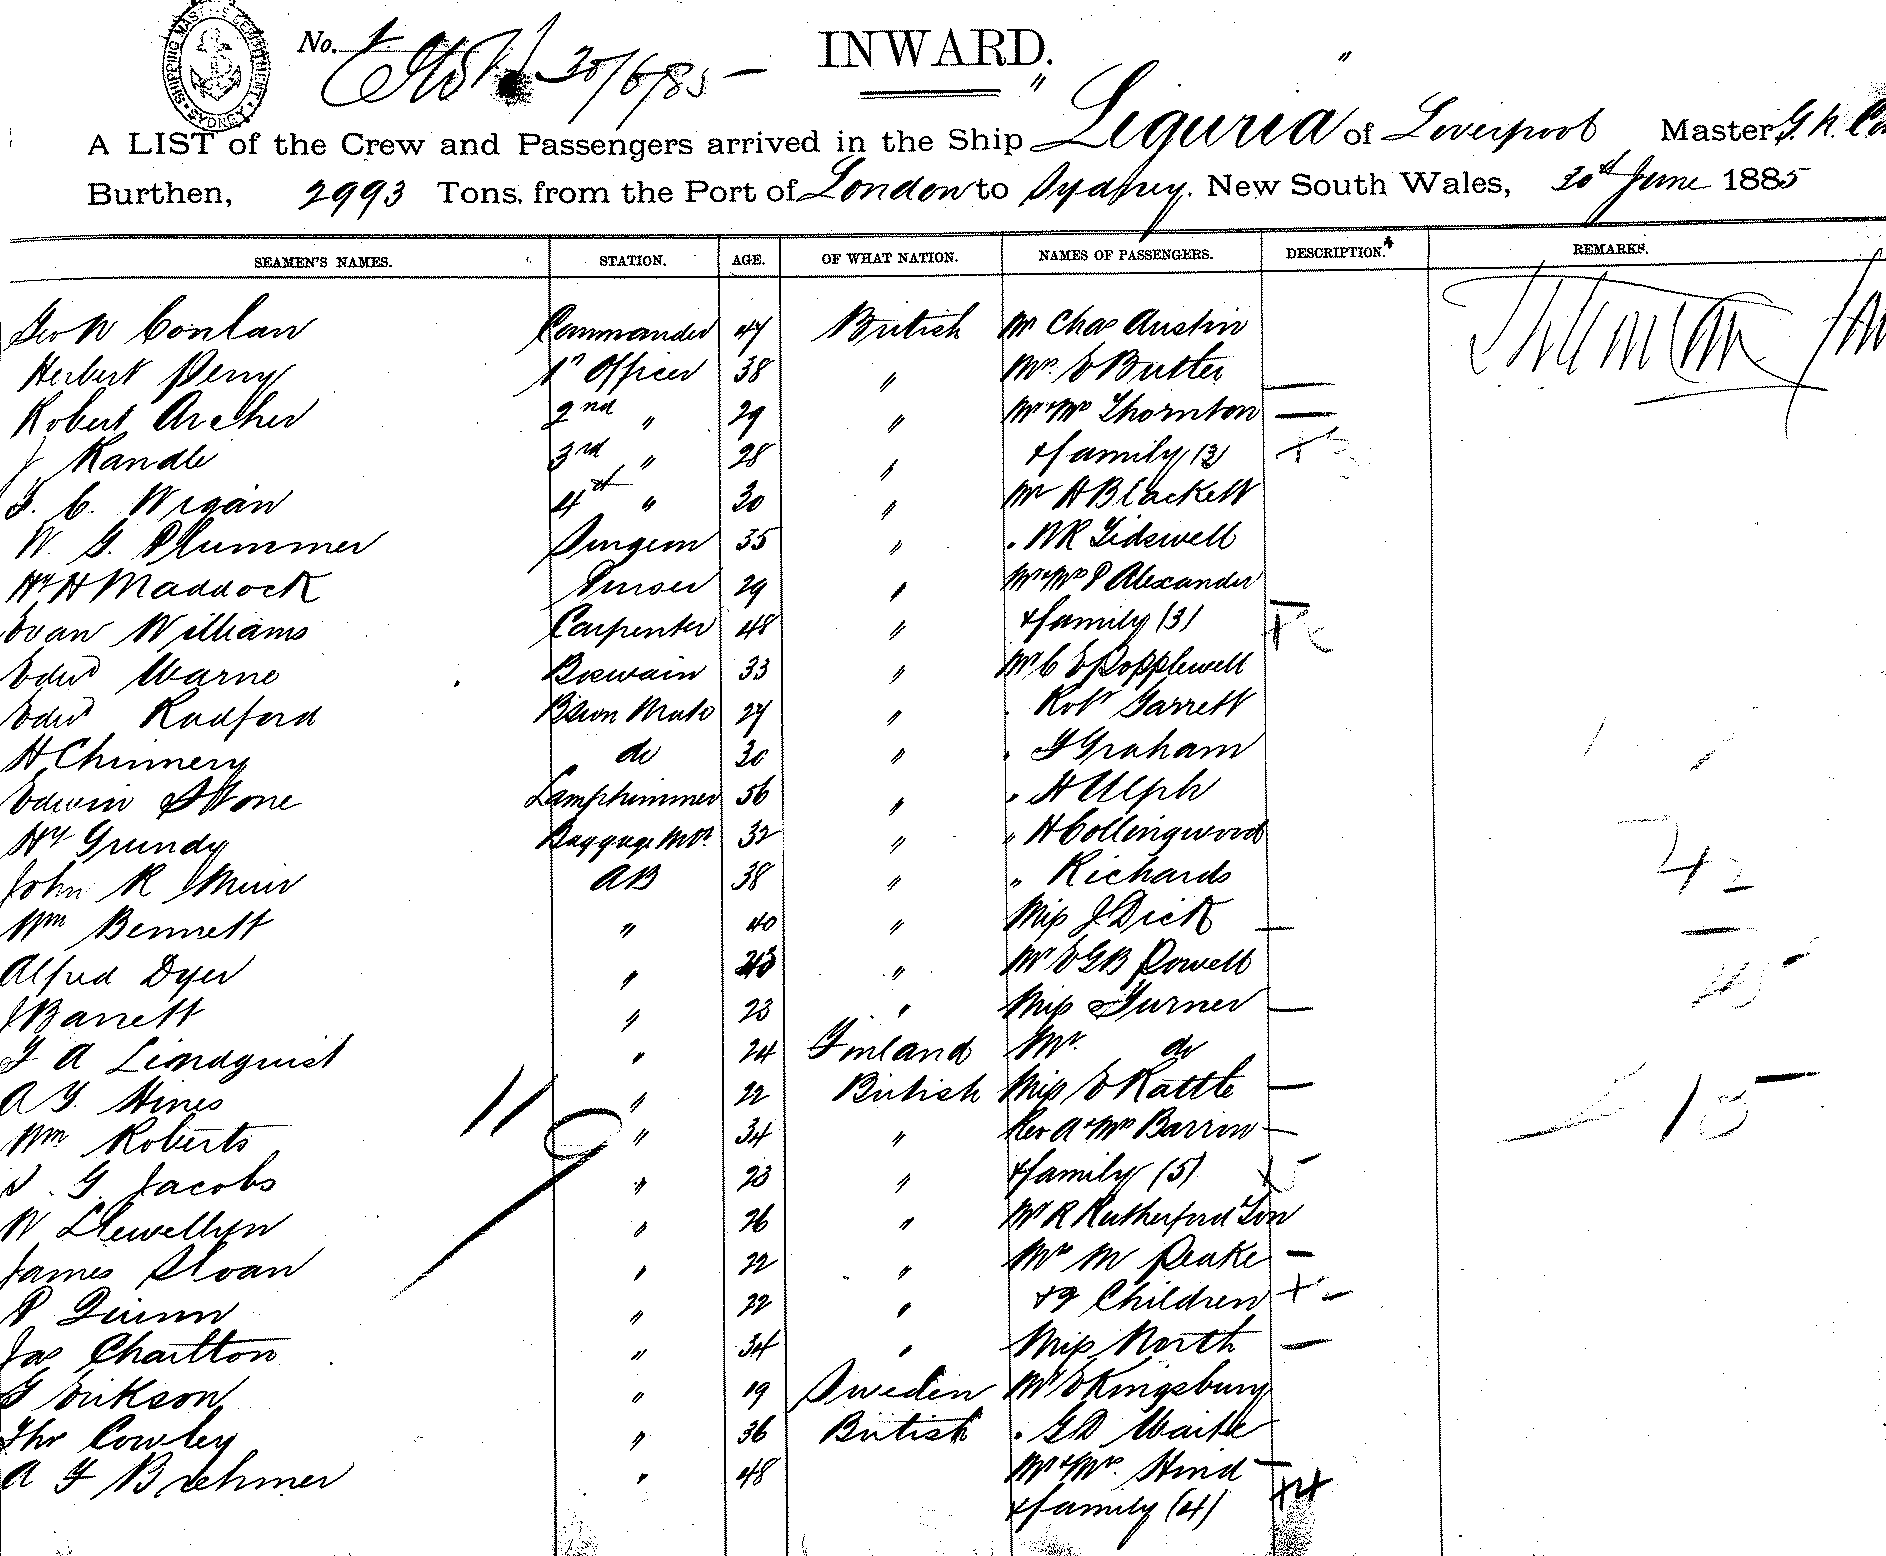 SHIPPING MASTER'S DEPARTMENT SYDNEY
No. 1
30/6/85 —
INWARD.
A LIST of the Crew and Passengers arrived in the Ship "Liguria" of Liverpool Master, G. N. Co
Burthen, 2993 Tons, from the Port of London to Sydney. New South Wales, 30th June 1885
SEAMEN'S NAMES. STATION. AGE. OF WHAT NATION. NAMES OF PASSENGERS. DESCRIPTION. REMARKS.
Geo N Conlan Commander 47 British Mr Chas Austin
Herbert Perry 1st Officer 38 " Mrs E Butler —
Robert Archer 2nd " 29 " Mr & Mrs Thornton —
J Randle 3rd " 28 " & family (3)
J. C. Wigan 4th " 30 " Mr H Blackett
W. G. Plummer Surgeon 35 " . W R Tidswell
Hy H Maddock Purser 29 " Mr & Mrs P Alexander
Evan Williams Carpenter 48 " & family (3)
Edwd Warne Boswain 33 " Mr C E Popplewell
Edwd Radford Bswn Mate 27 " . Robt Garrett
H Chinnery do 30 " . G Graham
Edwin Stone Lamptrimmer 56 " . H Ulph
Hy Grundy Baggage Mstr 32 " " H Collingwood
John R Muir AB 38 " " Richards
Wm Bennett " 40 " Miss J. Dick —
Alfred Dyer " " Mr E G B Powell
J Barrett " 23 " Miss Turner —
J A Lindquist " 24 Finland Mr. do
A G. Hines " 22 British Miss E Rattle —
Wm Roberts " 34 " Rev A & Mrs Barrow —
G. Jacobs " 23 " & family (5)
W Llewellyn " 26 " Mr R Rutherford Son
James Sloan " 22 " Mrs M Peake —
P Quinn " 22 " & 2 Children
Jas Charlton " 34 " Miss North —
G Erikson " 19 Sweden Mr E Kingsbury
Thos Cowley " 36 British . G D Waite
A F Brehmer " 48 Mr & Mrs. Hind —
& family (4) +4